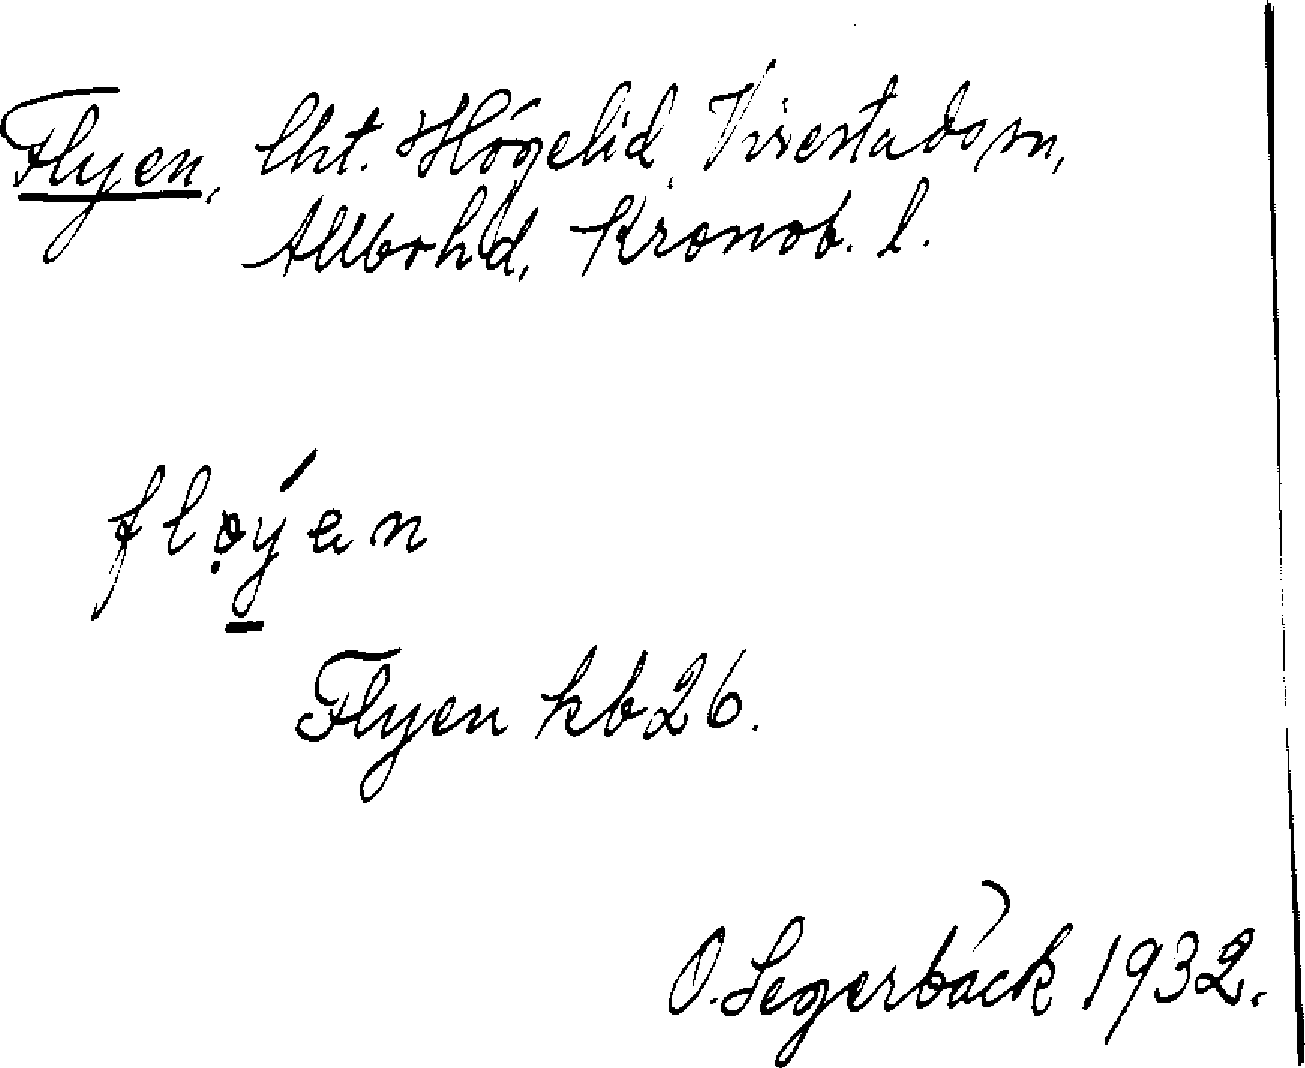 Flyen, lht. Högelid, Virestad sn,
Allbo hd, Kronob. l.
fløýen
Flyen kb 26.
O. Segerbäck 1932.